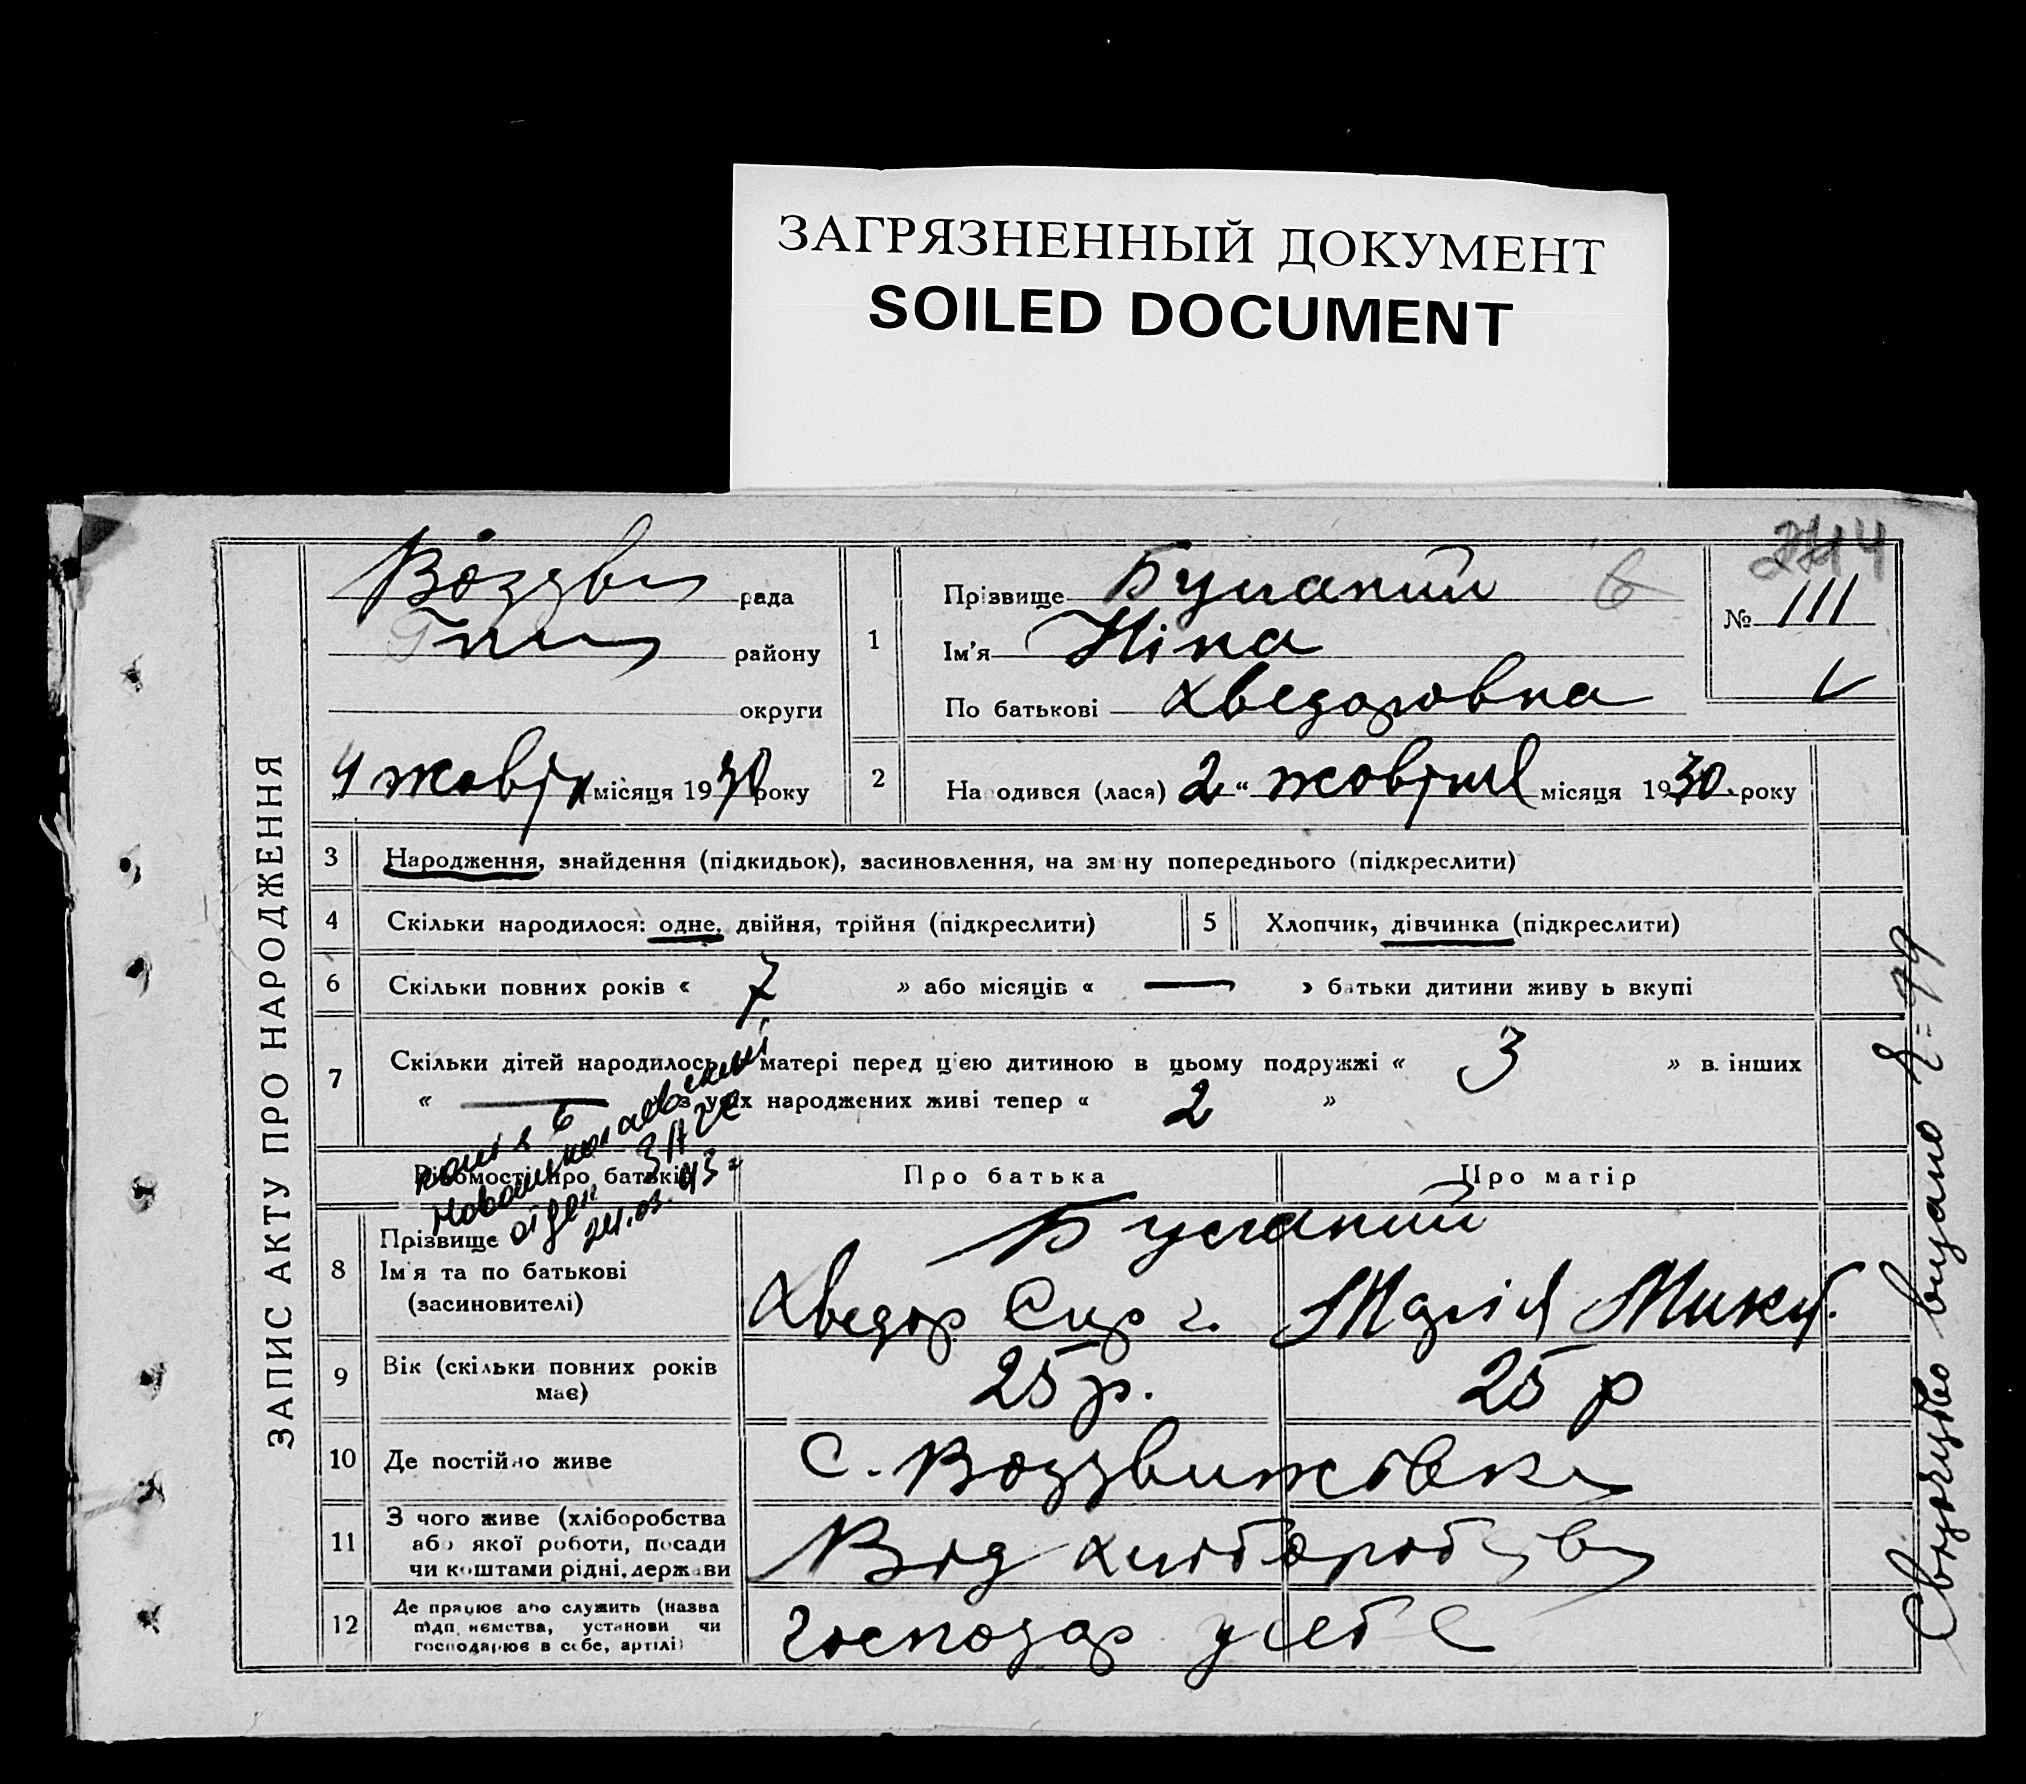 ЗАГРЯЗНЕННЫЙ ДОКУМЕНТ
SOILED DOCUMENT
ЗАПИС АКТУ ПРО НАРОДЖЕННЯ
рада
району
округи
4 жовтн місяця 1930 року
1
Прізвище
Ім'я Ніна
По батькові Хведоровна
№ 111
2
Народився (лася) 2 “ жовтня місяця 1930 року
3 Народження, знайдення (підкидьок), засиновлення, на зміну попереднього (підкреслити)
4 Скільки народилося: одне, двійня, трійня (підкреслити) 5 Хлопчик, дівчинка (підкреслити)
6 Скільки повних років « 7 » або місяців « — » батьки дитини живуть вкупі
7 Скільки дітей народилось у матері перед цією дитиною в цьому подружжі « 3 » в інших
« — » з усіх народжених живі тепер « 2 »
Відомості про батьків Про батька Про матір
24.03.93
8 Прізвище
Ім'я та по батькові
(засиновителі)
Хведор Мария
9 Вік (скільки повних років
має) 25 р. 25 р
10 Де постійно живе С. Воздвижівка
11 З чого живе (хліборобства
або якої роботи, посади
чи коштами рідні, держави
Від хліборобства
12 Де працює або служить (назва
підприємства, установи чи
господарює в себе, артілі)
Господар у себе
Свідоцтво видано